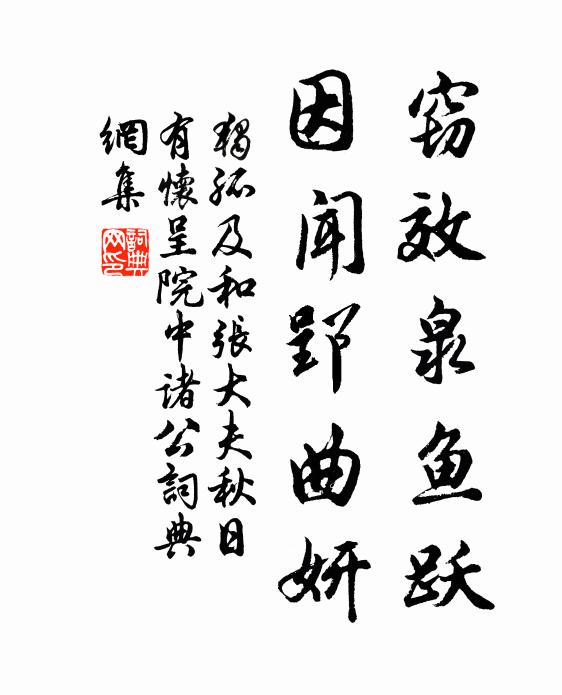 窃效泉鱼跃
因闻郢曲妍
独孤及和張大夫秋日
有懷呈院中诸公詞典
網集
詞典
网印